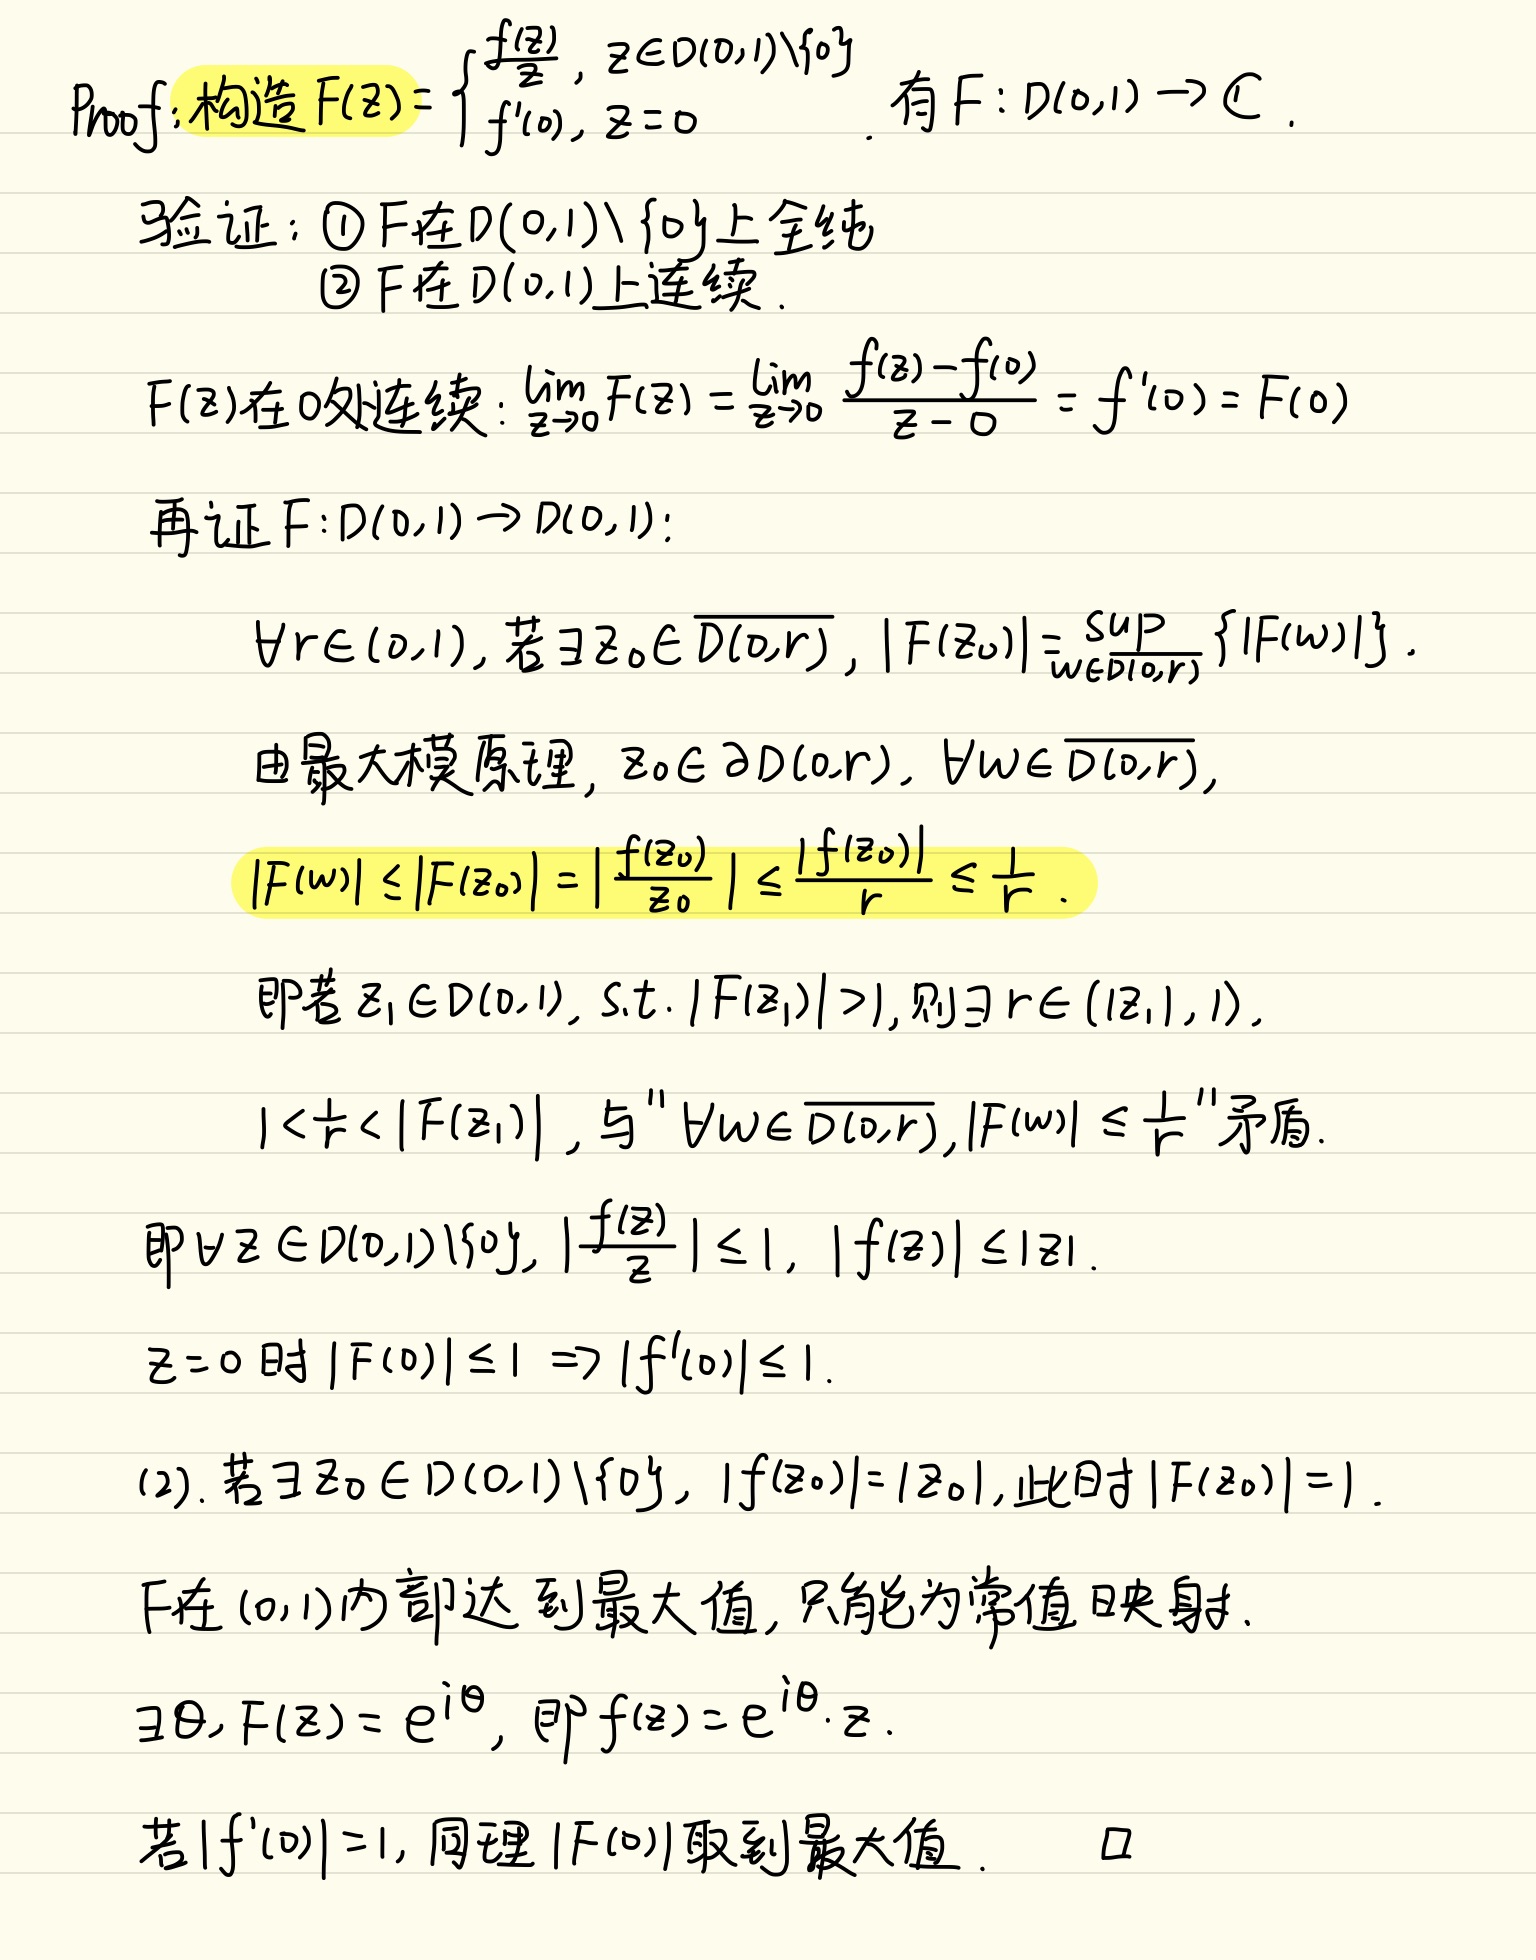 Proof: 构造 F(z) = { f(z)/z, z∈D(0,1)\{0}
f'(0), z=0 . 有 F: D(0,1) → ℂ.
验证: ① F在D(0,1)\{0}上全纯
② F在D(0,1)上连续.
F(z)在0处连续: lim_{z→0} F(z) = lim_{z→0} (f(z)-f(0))/(z-0) = f'(0) = F(0)
再证 F: D(0,1) → D(0,1):
∀r∈(0,1), 若∃z₀∈\overline{D(0,r)}, |F(z₀)| = sup_{w∈\overline{D(0,r)}} {|F(w)|}.
由最大模原理, z₀∈∂D(0,r), ∀w∈\overline{D(0,r)},
|F(w)| ≤ |F(z₀)| = |f(z₀)/z₀| ≤ |f(z₀)|/r ≤ 1/r.
即若 z₁∈D(0,1), s.t. |F(z₁)|>1, 则∃r∈(|z₁|,1),
1 < 1/r < |F(z₁)|, 与"∀w∈\overline{D(0,r)}, |F(w)| ≤ 1/r"矛盾.
即∀z∈D(0,1)\{0}, |f(z)/z| ≤ 1, |f(z)| ≤ |z|.
z=0 时 |F(0)| ≤ 1 ⇒ |f'(0)| ≤ 1.
(2). 若∃z₀∈D(0,1)\{0}, |f(z₀)| = |z₀|, 此时|F(z₀)| = 1.
F在(0,1)内部达到最大值, 只能为常值映射.
∃θ, F(z) = e^{iθ}, 即 f(z) = e^{iθ}·z.
若|f'(0)|=1, 同理 |F(0)| 取到最大值. □